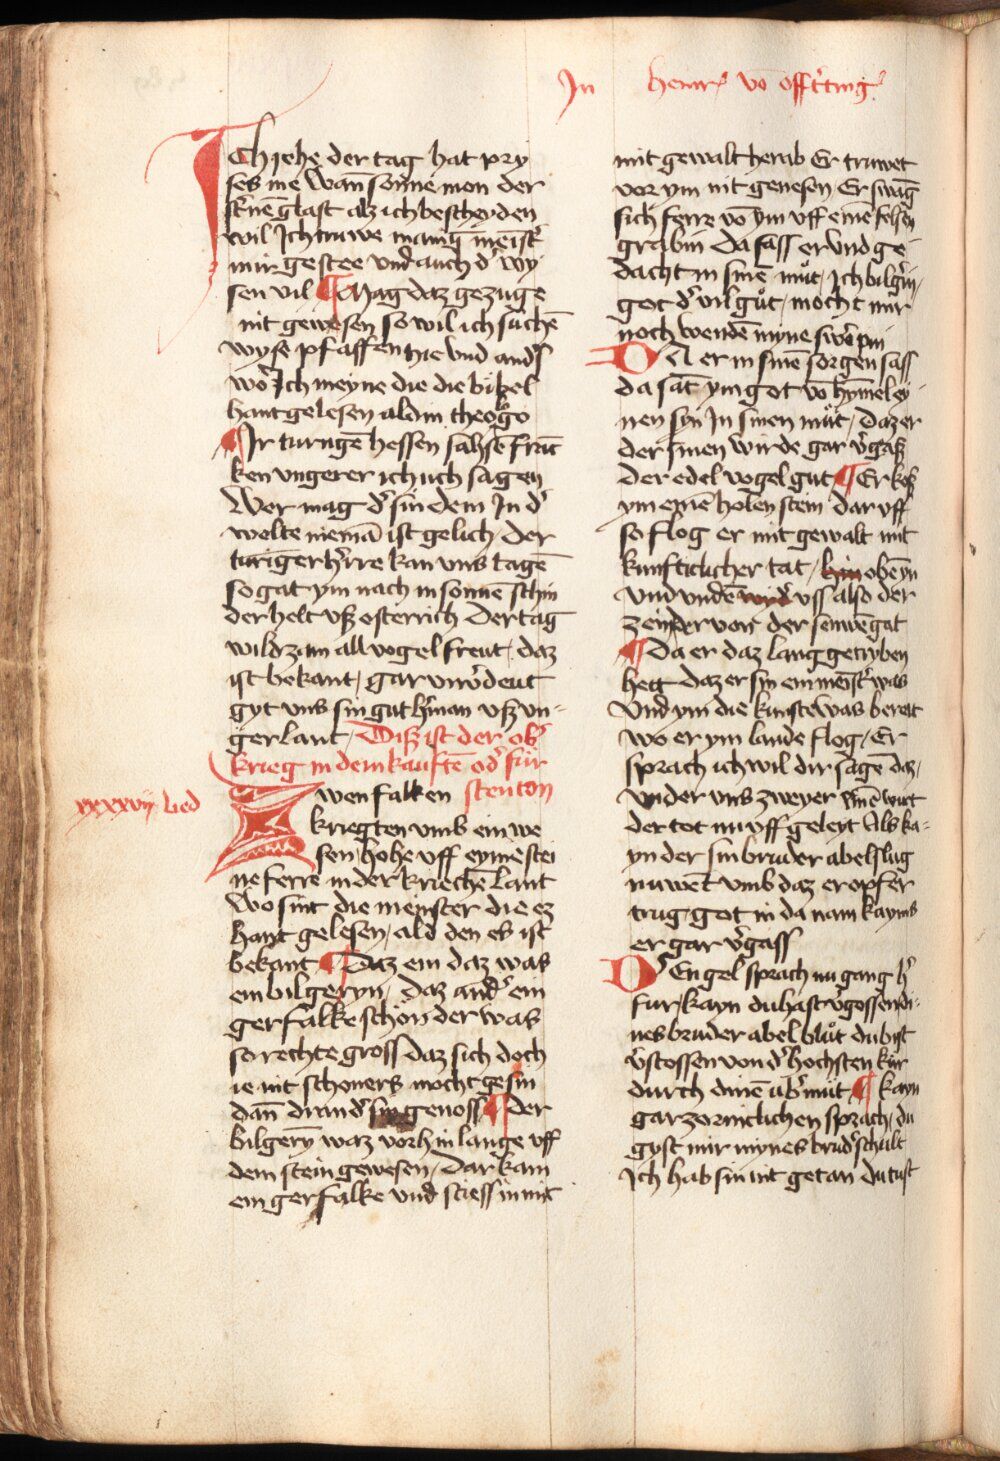 In Heinr vō offt'ting
Ich jehe der tag hat pry
ses me wan sonne mon der
st'nē glast alz ich bescheyden
wil Ich truwe manig meist'
mir gestee vnd auch d' wy
sen vil ¶ Mag daz gezuge
nit gewesen so wil ich suchē
wyse pfaffen hie vnd and's
wo Ich meyne die die bibel
hant gelesen ald in theogo
¶ Ir turngē hessen sahsē frāc
ken vngerer ich uch sagen
Wer mag d' sin dem In d'
welte niemā ist gelich der
turigē herre kan vns tagē
so gat ym nach in sonnē schin
der helt vß osterrich Der tag
wild zam all vogel freut daz
ist bekant gar vnv'deut
gyt vns sin gut h'man vß vn
gerlant Diß ist der ob'
krieg in dem kauftē od' für
sten ton
xxxxvij lied
Zwen falken
kriegten vmb ein we
sen hohe vff eyme stei
ne ferre in der kriechē lant
Wo sint die meinster die ez
hant gelesen ald den es ist
bekant ¶ Daz ein daz was
ein bilgeryn daz and' ein
gerfalke schon der was
so rechte gross daz sich doch
ie nit schoners mocht gesin
dan drand' sin genoss ¶ Der
bilgeryn waz vorhin lange vff
dem stein gewesen Dar kam
ein gerfalke vnd stiess in mit
mit gewalt herab Er truwet
vor ym nit genesen Er swāg
sich ferre vō ym vff einē felsen
grabin Da sass er vnd ge
dacht in sinē můt Ich bilgrin
got d' vil gůt mocht mir
noch wendē myne swere pin
DA er in sinē sorgen sass
da sāt ym got vō hymel ey
nen syn In sinen můt daz er
der sinen wirde gar v'gaß
der edel vogel gut ¶ Er koß
ym einē holen stein dar vff
so flog er mit gewalt mit
kunfticlicher tat hin obē yn
vnd vndē wyd' vss also der
zein der von der senwē gat
¶ Da er daz lang getriben
hett daz er sin ein meist' was
Vnd ym die kunste was bereit
wo er ym lande flog Er
sprach ich wil dir sagē daz
vnder vns zweyer einē wirt
der tot nu vff geleyt Als ka
yn der sin bruder abel slug
nuwet vmb daz er opfer
trug got in da nam kayns
er gar v'gass
D' Engel sprach nu gang h'
fur kayn du hast v'gossen di
nes bruder abel blůt du bist
v'stossen von d' hochsten kür
durch dinē ub'můt ¶ kayn
gar zornclichen sprach du
gyst mir mynes brud' schult
Ich hab sin nit getan du tust